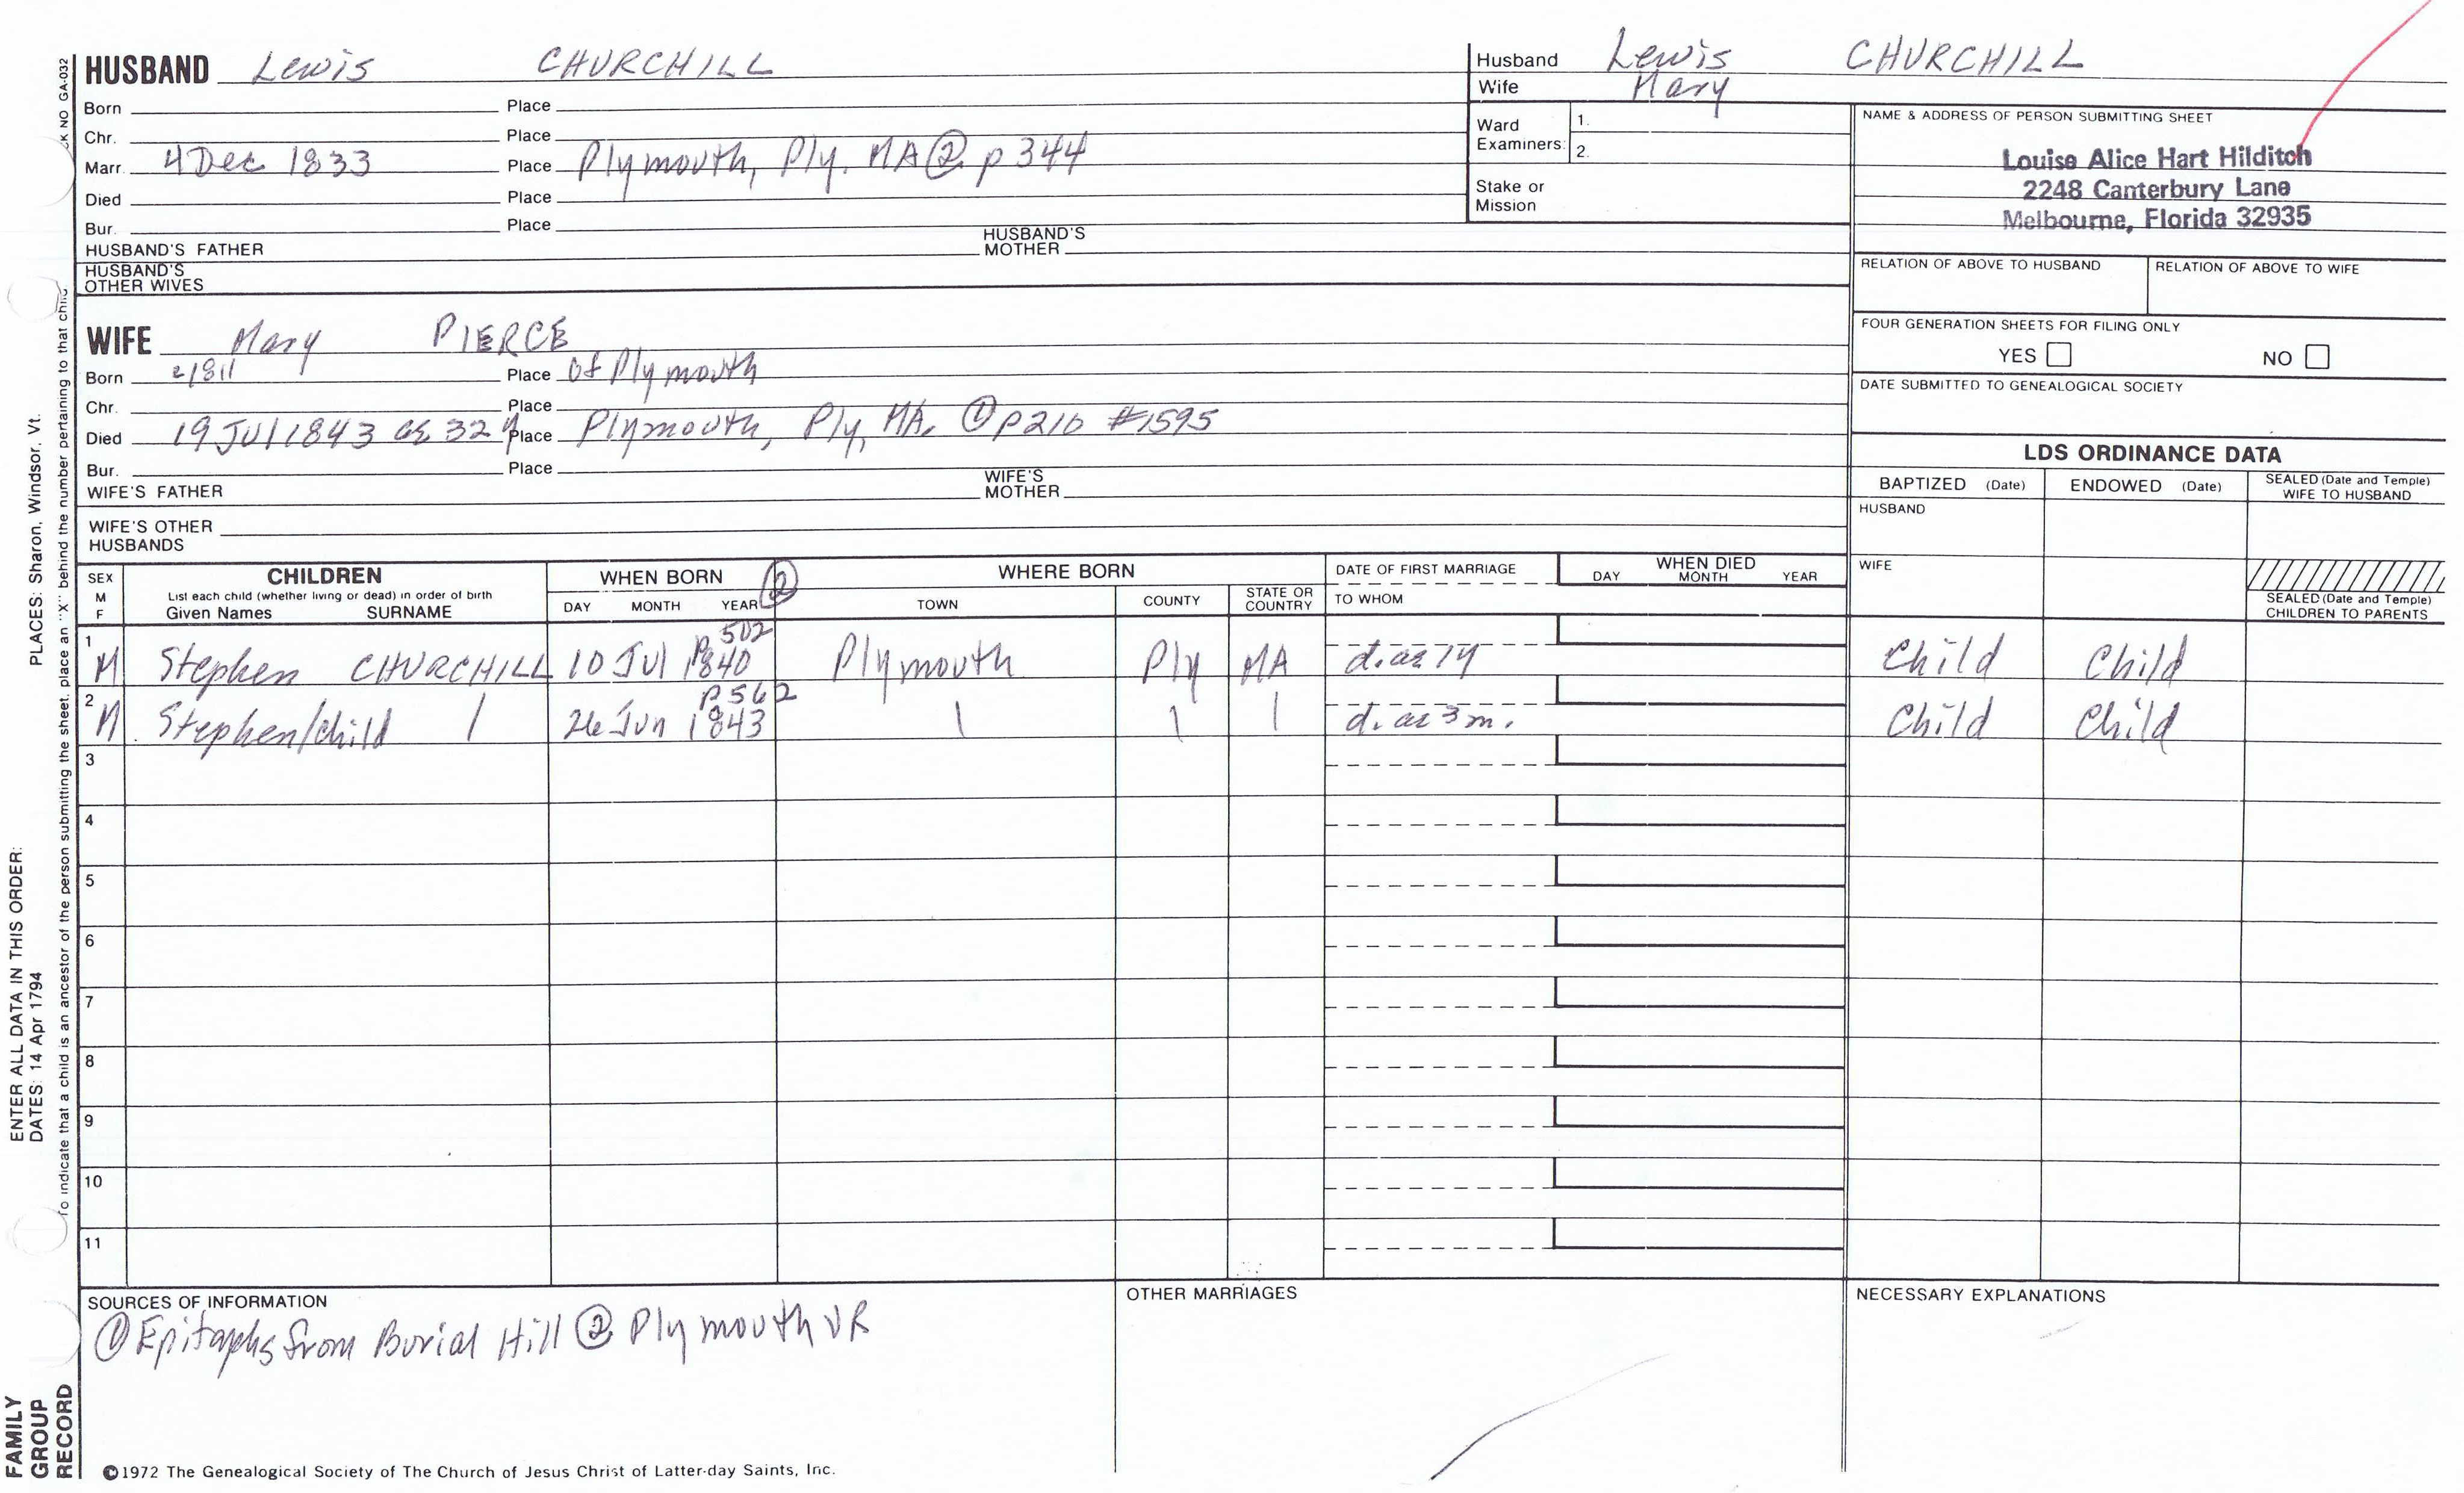 HUSBAND Lewis CHURCHILL
Born Place
Chr. Place
Marr. 4 Dec 1833 Place Plymouth, Ply. MA ② p 344
Died Place
Bur. Place
HUSBAND'S FATHER HUSBAND'S MOTHER
HUSBAND'S OTHER WIVES
Husband Lewis CHURCHILL
Wife Mary
Ward Examiners: 1.
2.
Stake or Mission
NAME & ADDRESS OF PERSON SUBMITTING SHEET
Louise Alice Hart Hilditch
2248 Canterbury Lane
Melbourne, Florida 32935
RELATION OF ABOVE TO HUSBAND RELATION OF ABOVE TO WIFE
FOUR GENERATION SHEETS FOR FILING ONLY
YES NO
DATE SUBMITTED TO GENEALOGICAL SOCIETY
WIFE Mary PIERCE
Born 1811 Place of Plymouth
Chr. Place
Died 19 Jul 1843 ae 32 y Place Plymouth, Ply, MA. ① p216 #1595
Bur. Place
WIFE'S FATHER WIFE'S MOTHER
WIFE'S OTHER HUSBANDS
LDS ORDINANCE DATA
BAPTIZED (Date) ENDOWED (Date) SEALED (Date and Temple) WIFE TO HUSBAND
HUSBAND
WIFE
SEALED (Date and Temple) CHILDREN TO PARENTS
SEX M F
CHILDREN
List each child (whether living or dead) in order of birth
Given Names SURNAME
WHEN BORN ②
DAY MONTH YEAR
WHERE BORN
TOWN COUNTY STATE OR COUNTRY
DATE OF FIRST MARRIAGE
TO WHOM
WHEN DIED
DAY MONTH YEAR
p 502
1 M Stephen CHURCHILL 10 Jul 1840 Plymouth Ply MA d. ae 1y Child Child
p 562
2 M Stephen/child 26 Jun 1843 d. ae 3 m. Child Child
3
4
5
6
7
8
9
10
11
SOURCES OF INFORMATION
① Epitaphs from Burial Hill ② Plymouth VR
OTHER MARRIAGES
NECESSARY EXPLANATIONS
©1972 The Genealogical Society of The Church of Jesus Christ of Latter-day Saints, Inc.
FAMILY
GROUP
RECORD
ENTER ALL DATA IN THIS ORDER:
DATES: 14 Apr 1794 PLACES: Sharon, Windsor, Vt.
To indicate that a child is an ancestor of the person submitting the sheet, place an "X" behind the number pertaining to that
NO GA-032